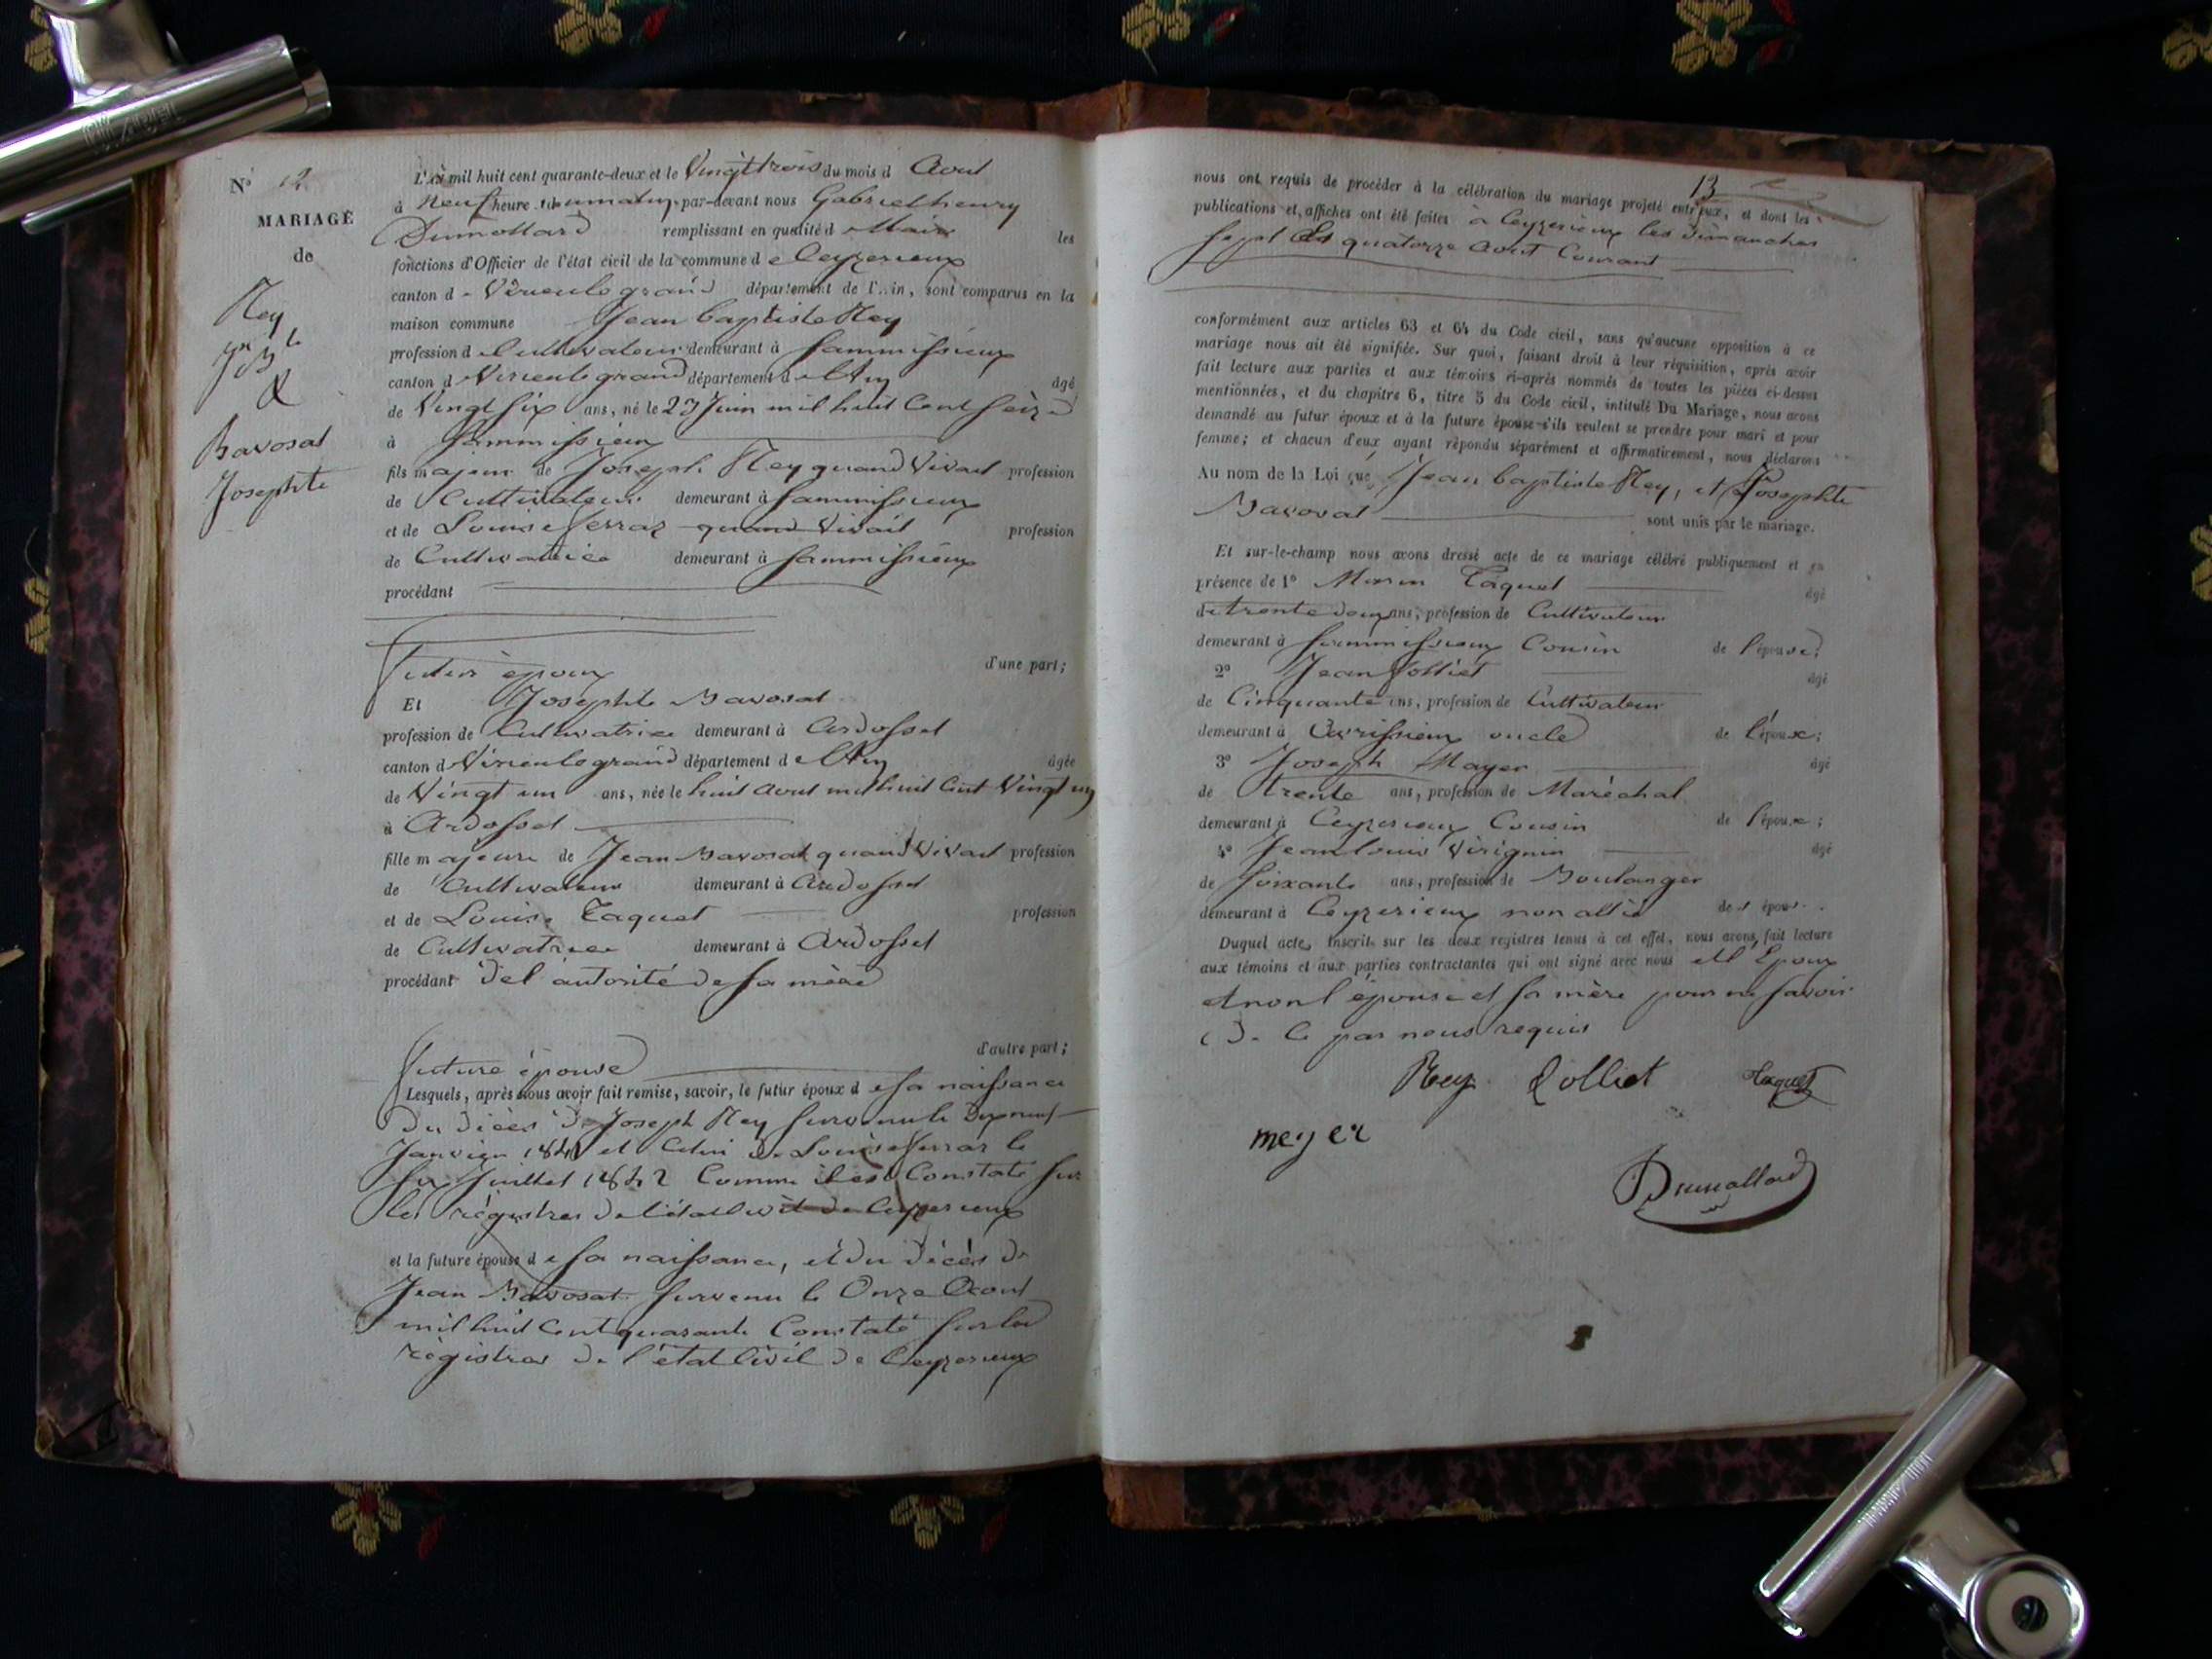 N° 12
MARIAGE
de
Rey
Jn Bte
&
Bavosat
Josephte
L'an mil huit cent quarante-deux et le Vingt trois du mois d Aout
à Neuf heures du matin, par-devant nous Gabriel henry
Dumollard remplissant en qualité d Maire les
fonctions d'Officier de l'état civil de la commune de Ceyzerieux
canton de Virieulegrand département de l'Ain, sont comparus en la
maison commune Jean baptiste Rey
profession de Cultivateur demeurant à Sammissieux
canton d Virieulegrand département de l'Ain âgé
de Vingt six ans, né le 27 Juin mil huit Cent Seize
à Sammissieux
fils majeur de Joseph Rey quand Vivait profession
de Cultivateur demeurant à Sammissieux
et de Louise ferraz quand Vivait profession
de Cultivatrice demeurant à Sammissieux
procédant
futur époux d'une part;
Et Josephte Bavosat
profession de Cultivatrice demeurant à Ardosset
canton d Virieulegrand département de l'Ain âgée
de Vingt un ans, née le huit Aout mil huit Cent Vingt un
à Ardosset
fille majeure de Jean Bavosat quand Vivait profession
de Cultivateur demeurant à Ardosset
et de Louise Taquet profession
de Cultivatrice demeurant à Ardosset
procédant de l'autorité de sa mère
future épouse d'autre part;
Lesquels, après nous avoir fait remise, savoir, le futur époux de sa naissance
du décès de Joseph Rey survenu le dix neuf
Janvier et Celui de Louise ferraz le
six Juillet 1842 Comme il est Constaté sur
les régistres de l'état Civil de Ceyzerieux
et la future épouse de sa naissance, et du décès de
Jean Bavosat survenu le Onze Aout
mil huit Cent quarante Constaté sur les
régistres de l'état Civil de Ceyzerieux
13
nous ont requis de procéder à la célébration du mariage projeté entr'eux, et dont les
publications et affiches ont été faites à Ceyzerieux les dimanches
sept et quatorze Aout Courant
conformément aux articles 63 et 64 du Code civil, sans qu'aucune opposition à ce
mariage nous ait été signifiée. Sur quoi, faisant droit à leur réquisition, après avoir
fait lecture aux parties et aux témoins ci-après nommés de toutes les pièces ci-dessus
mentionnées, et du chapitre 6, titre 5 du Code civil, intitulé Du Mariage, nous avons
demandé au futur époux et à la future épouse s'ils veulent se prendre pour mari et pour
femme; et chacun d'eux ayant répondu séparément et affirmativement, nous déclarons
Au nom de la Loi que Jean baptiste Rey, et Josephte
Bavosat sont unis par le mariage.
Et sur-le-champ nous avons dressé acte de ce mariage célébré publiquement et en
présence de 1° Taquet âgé
de trente deux ans, profession de Cultivateur
demeurant à Sammissieux Cousin de l'épouse;
2° Jean Jolliet âgé
de Cinquante ans, profession de Cultivateur
demeurant à Avrissieux oncle de l'époux;
3° Joseph Mayer âgé
de trente ans, profession de Maréchal
demeurant à Ceyzerieux Cousin de l'époux;
4° Jean louis Virignin âgé
de soixante ans, profession de Boulanger
demeurant à Ceyzerieux non allié des époux.
Duquel acte, inscrit sur les deux registres tenus à cet effet, nous avons fait lecture
aux témoins et aux parties contractantes qui ont signé avec nous et l'époux
et non l'épouse et sa mère pour ne savoir
de ce par nous requis
Rey Jolliet Taquet
meyer
Dumollard